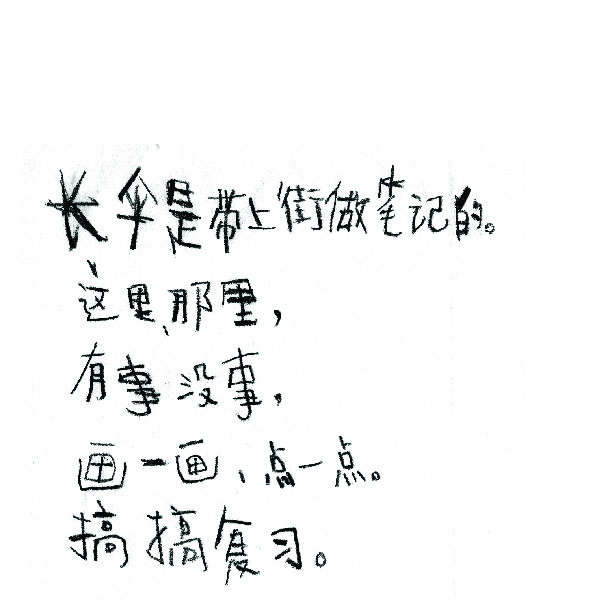 长伞是带上街做笔记的。
这里、那里，
有事没事，
画一画、点一点。
搞搞复习。